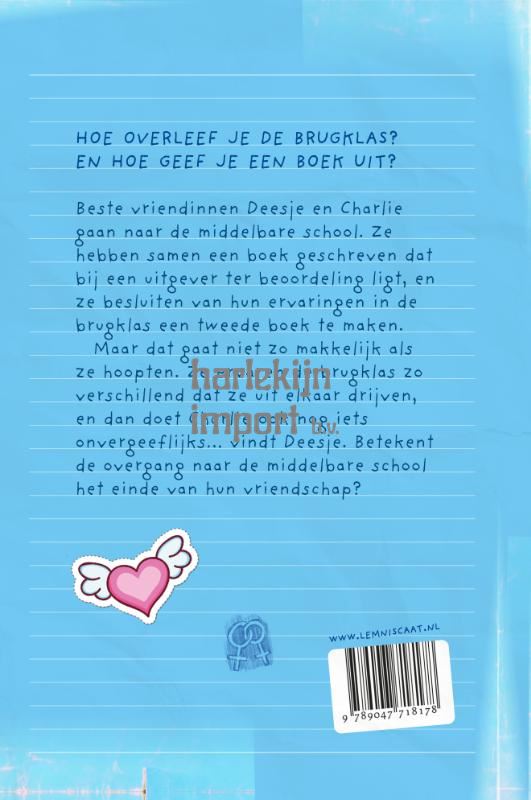 HOE OVERLEEF JE DE BRUGKLAS?
EN HOE GEEF JE EEN BOEK UIT?
Beste vriendinnen Deesje en Charlie
gaan naar de middelbare school. Ze
hebben samen een boek geschreven dat
bij een uitgever ter beoordeling ligt, en
ze besluiten van hun ervaringen in de
brugklas een tweede boek te maken.
Maar dat gaat niet zo makkelijk als
ze hoopten. Ze ervaren de brugklas zo
verschillend dat ze uit elkaar drijven,
en dan doet Charlie ook nog iets
onvergeeflijks... vindt Deesje. Betekent
de overgang naar de middelbare school
het einde van hun vriendschap?
harlekijn
import b.v.
WWW.LEMNISCAAT.NL
9 789047 718178